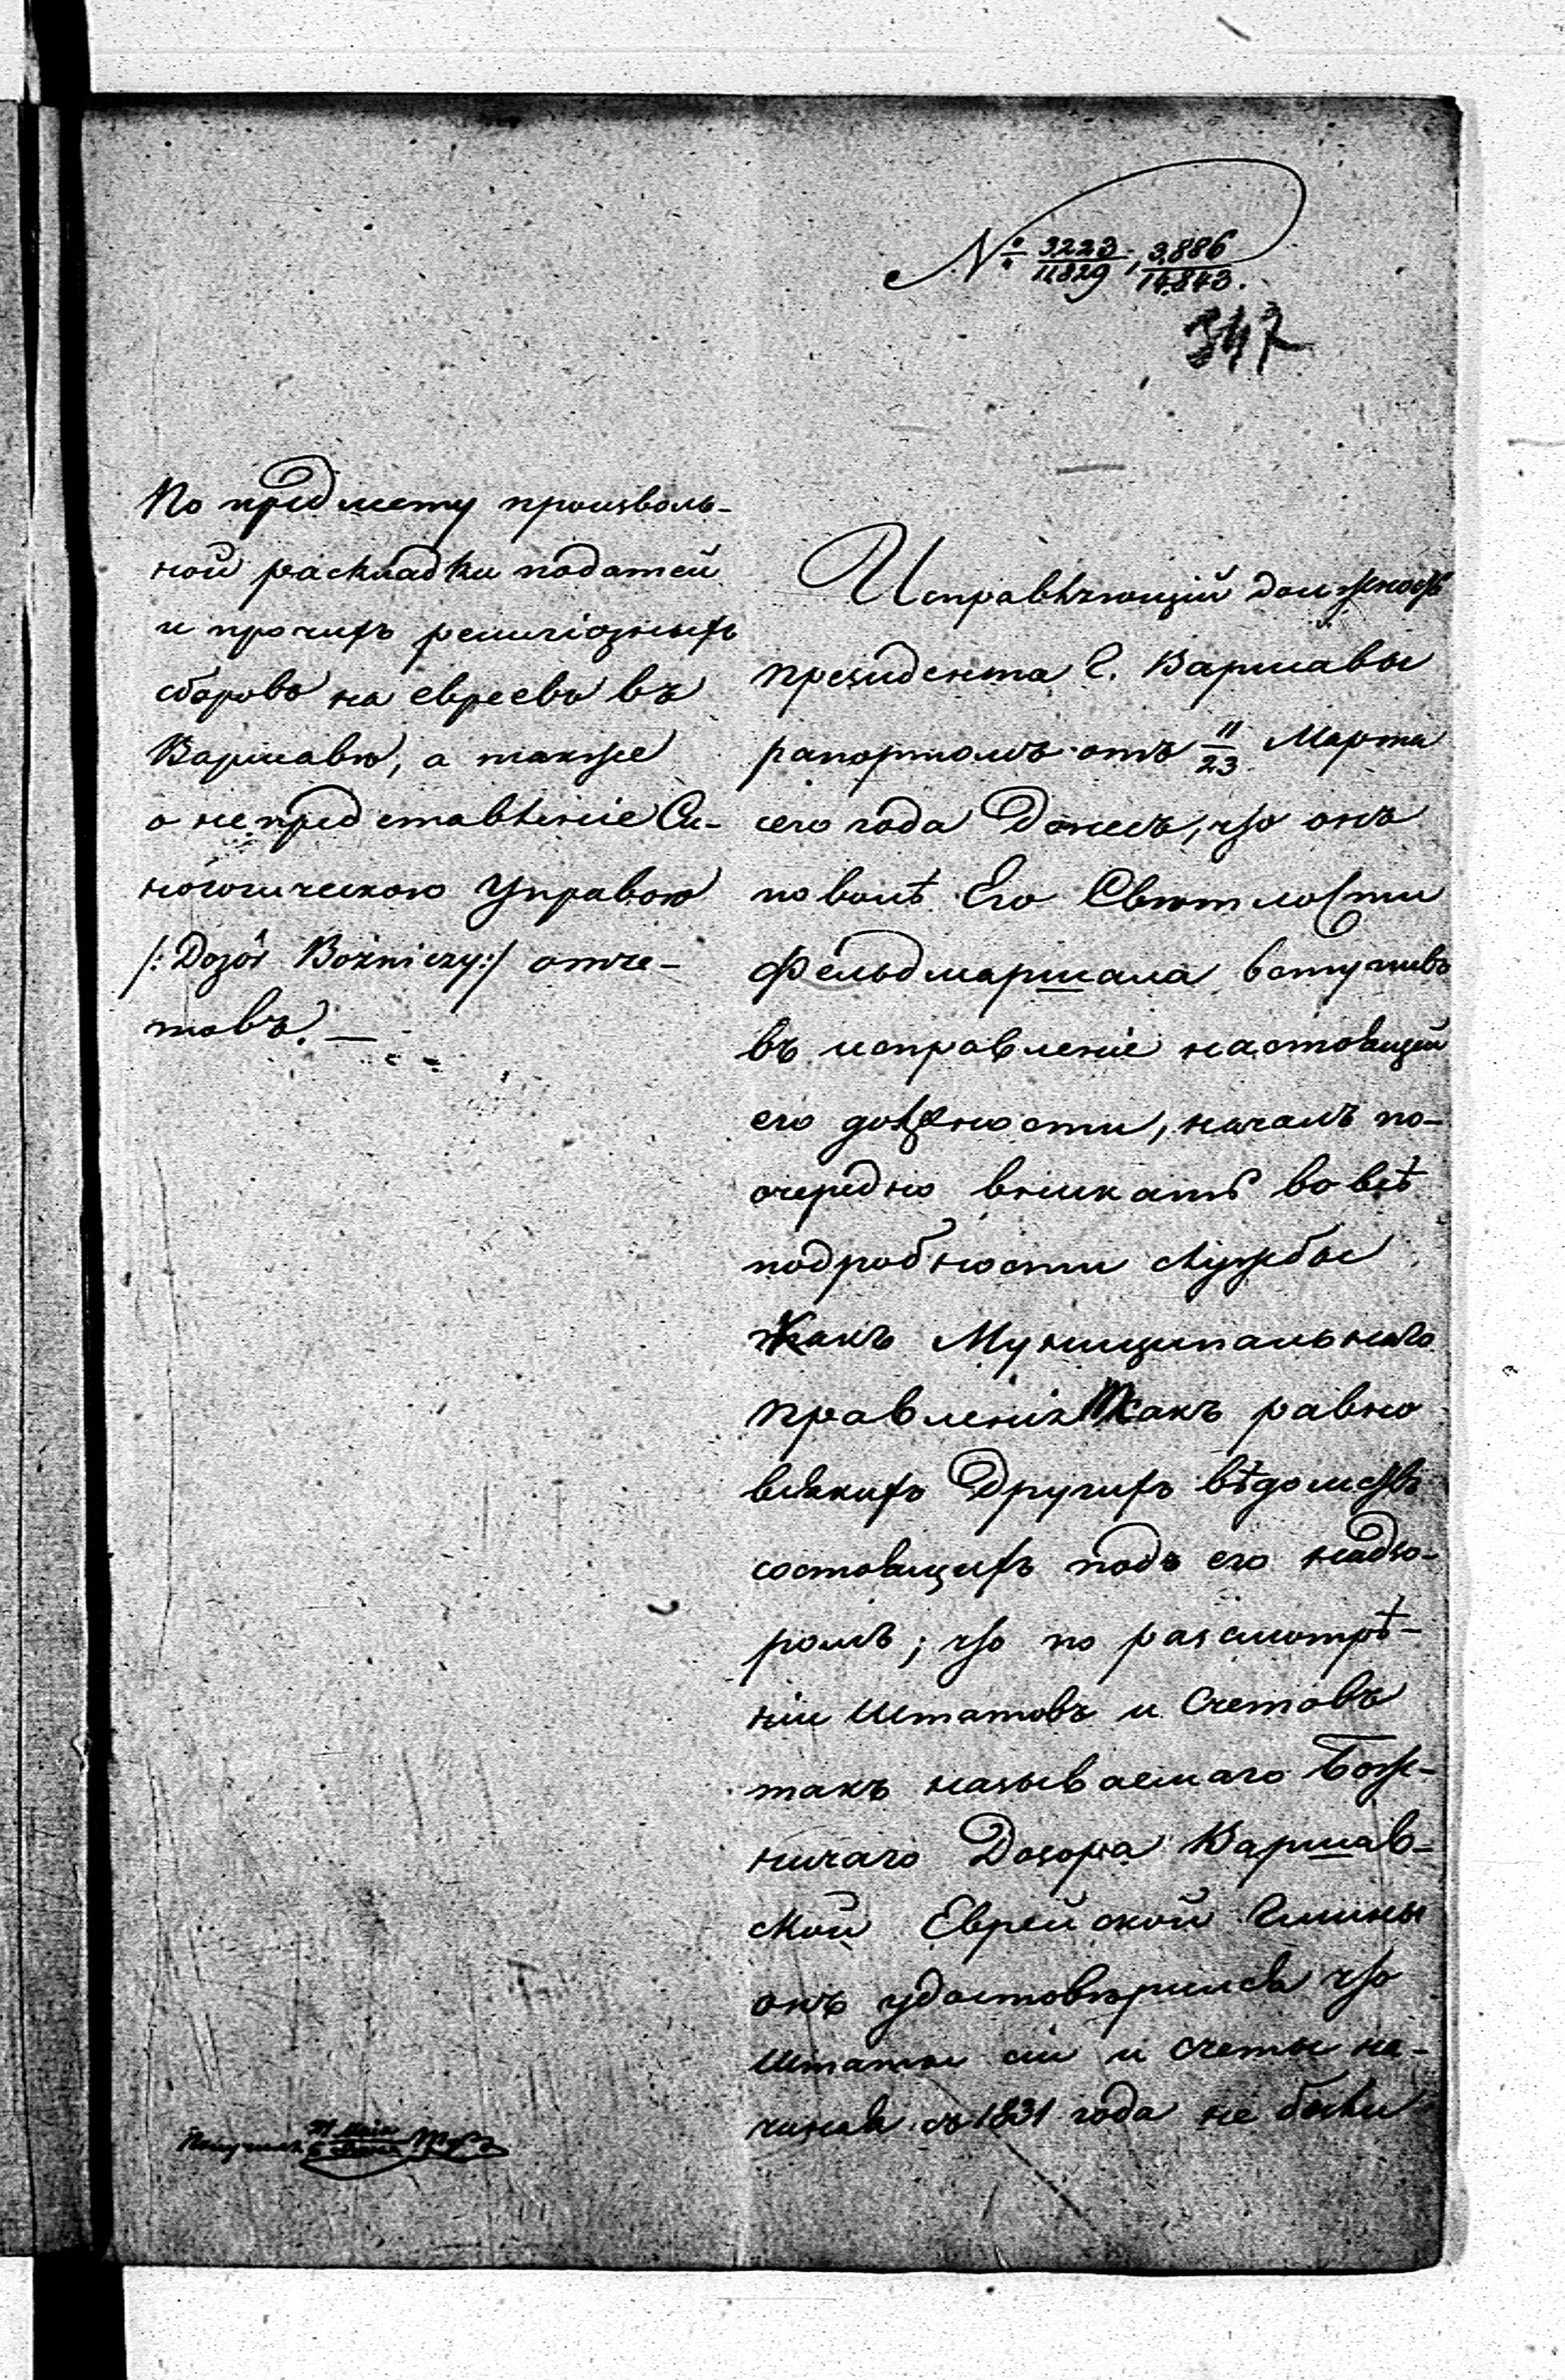 № 3223/11829, 3,886/14,843.
347
По предмету произволь-
ной раскладки податей
и прочихъ религіозныхъ
сборовъ на евреевъ въ
Варшавѣ, а также
о непредставленіе Си-
ногогическою Управою
/: Dozór Bożniczy:/ отче-
товъ. —
Исправляющій должность
президента Г. Варшавы
рапортомъ отъ 11/23 Марта
сего года донесъ, что онъ
по волѣ Его Свѣтлости
Фельдмаршала, вступивъ
въ исправленіе настоящей
его должности, началъ по-
очередно вникать во всѣ
подробности службы
какъ Муниципальнаго
правленія такъ равно
всякихъ другихъ вѣдомствъ
состоящихъ подъ его надзо-
ромъ; что по разсмотрѣ-
ніи Штатовъ и Счетовъ
такъ называемаго Бож-
ничаго Дозора Варшав-
ской Еврейской Гмины
онъ удостовѣрился что
Штаты сіи и счеты на-
чиная съ 1831 года не были
Получилъ